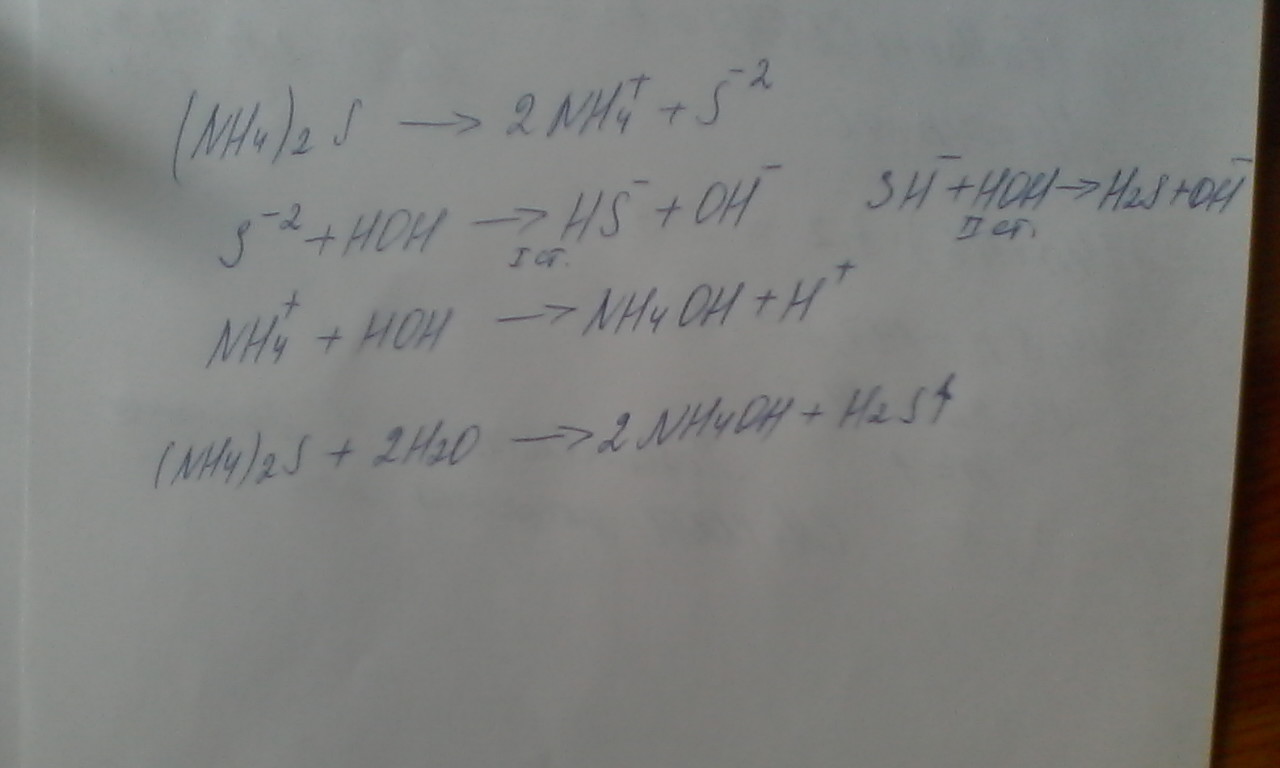 (NH₄)₂S → 2NH₄⁺ + S⁻²
S⁻² + HOH → HS⁻ + OH⁻ SH⁻ + HOH → H₂S + OH⁻
I ст. II ст.
NH₄⁺ + HOH → NH₄OH + H⁺
(NH₄)₂S + 2H₂O → 2NH₄OH + H₂S↑